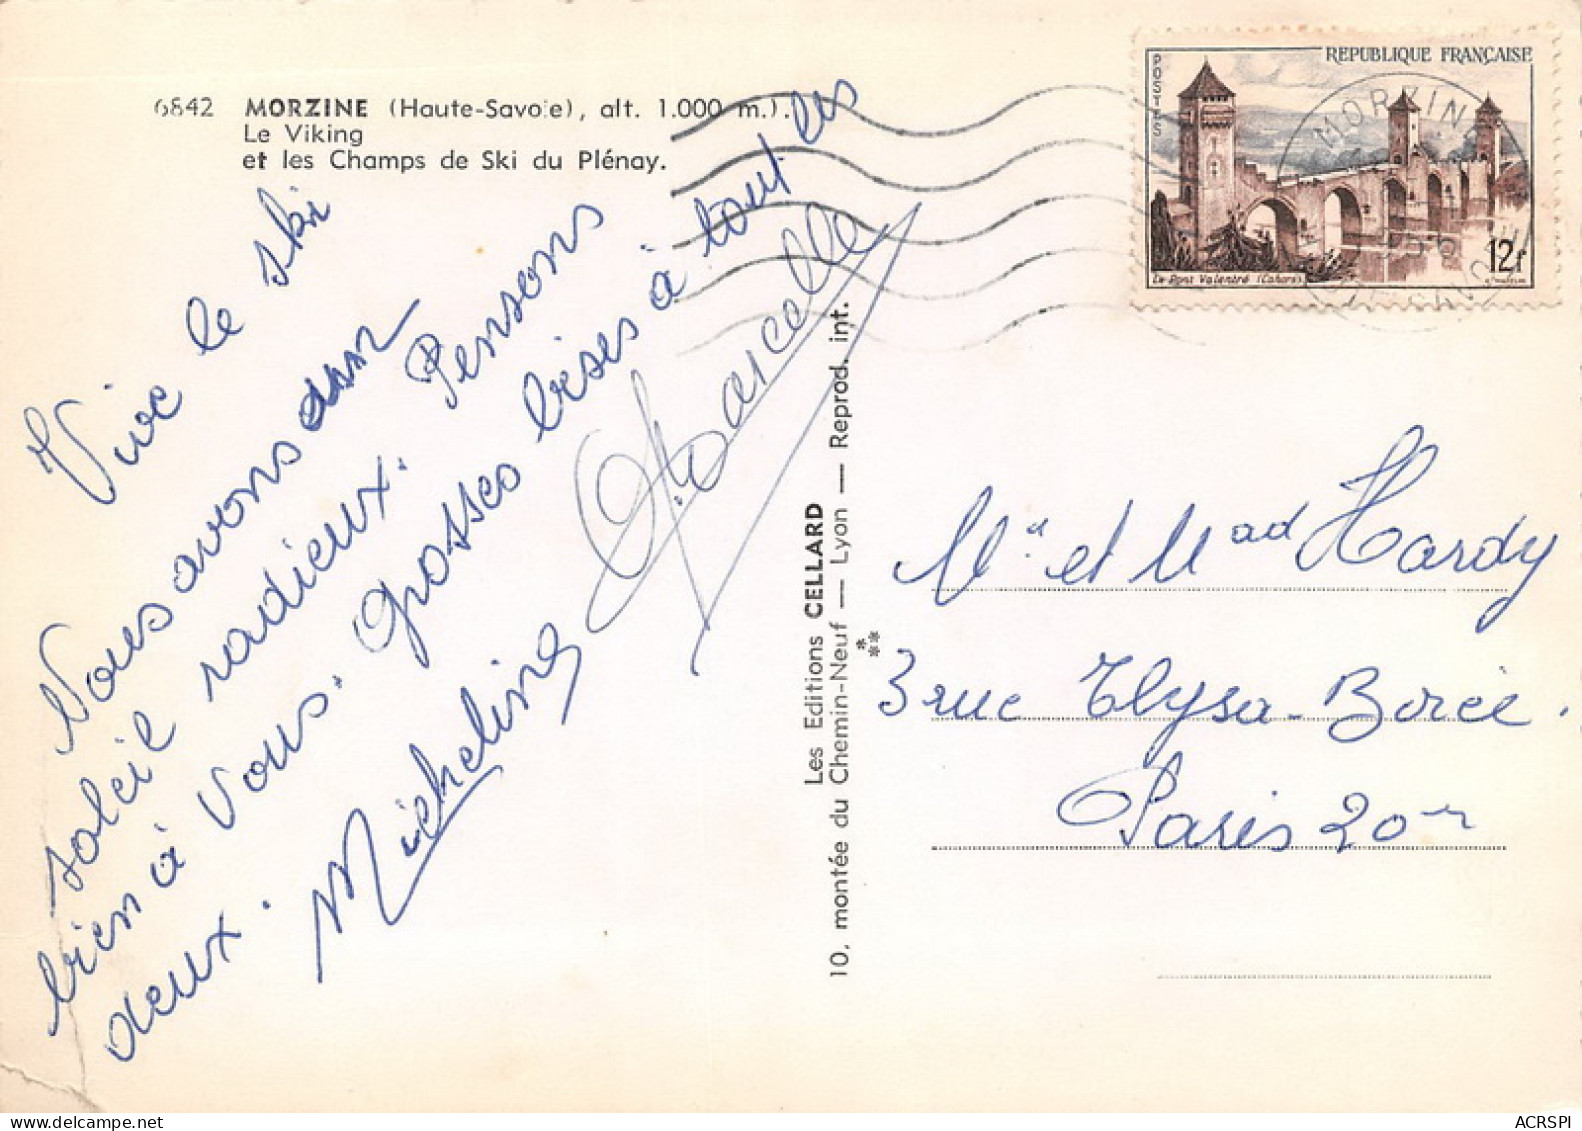 6842 MORZINE (Haute-Savoie), alt. 1.000 m.).
Le Viking
et les Champs de Ski du Plénay.
Vive le ski
Nous avons
soleil radieux. Pensons
bien à vous. Grosses bises à tout les
deux.
Micheline
Marcelle
Les Editions CELLARD
10, montée du Chemin-Neuf — Lyon — Reprod. int.
REPUBLIQUE FRANÇAISE
POSTES
12f
Le Pont Valentré (Cahors)
MORZINE
Mr et Mad Hardy
3 rue Elysa-Borée.
Paris 20
ACRSPI